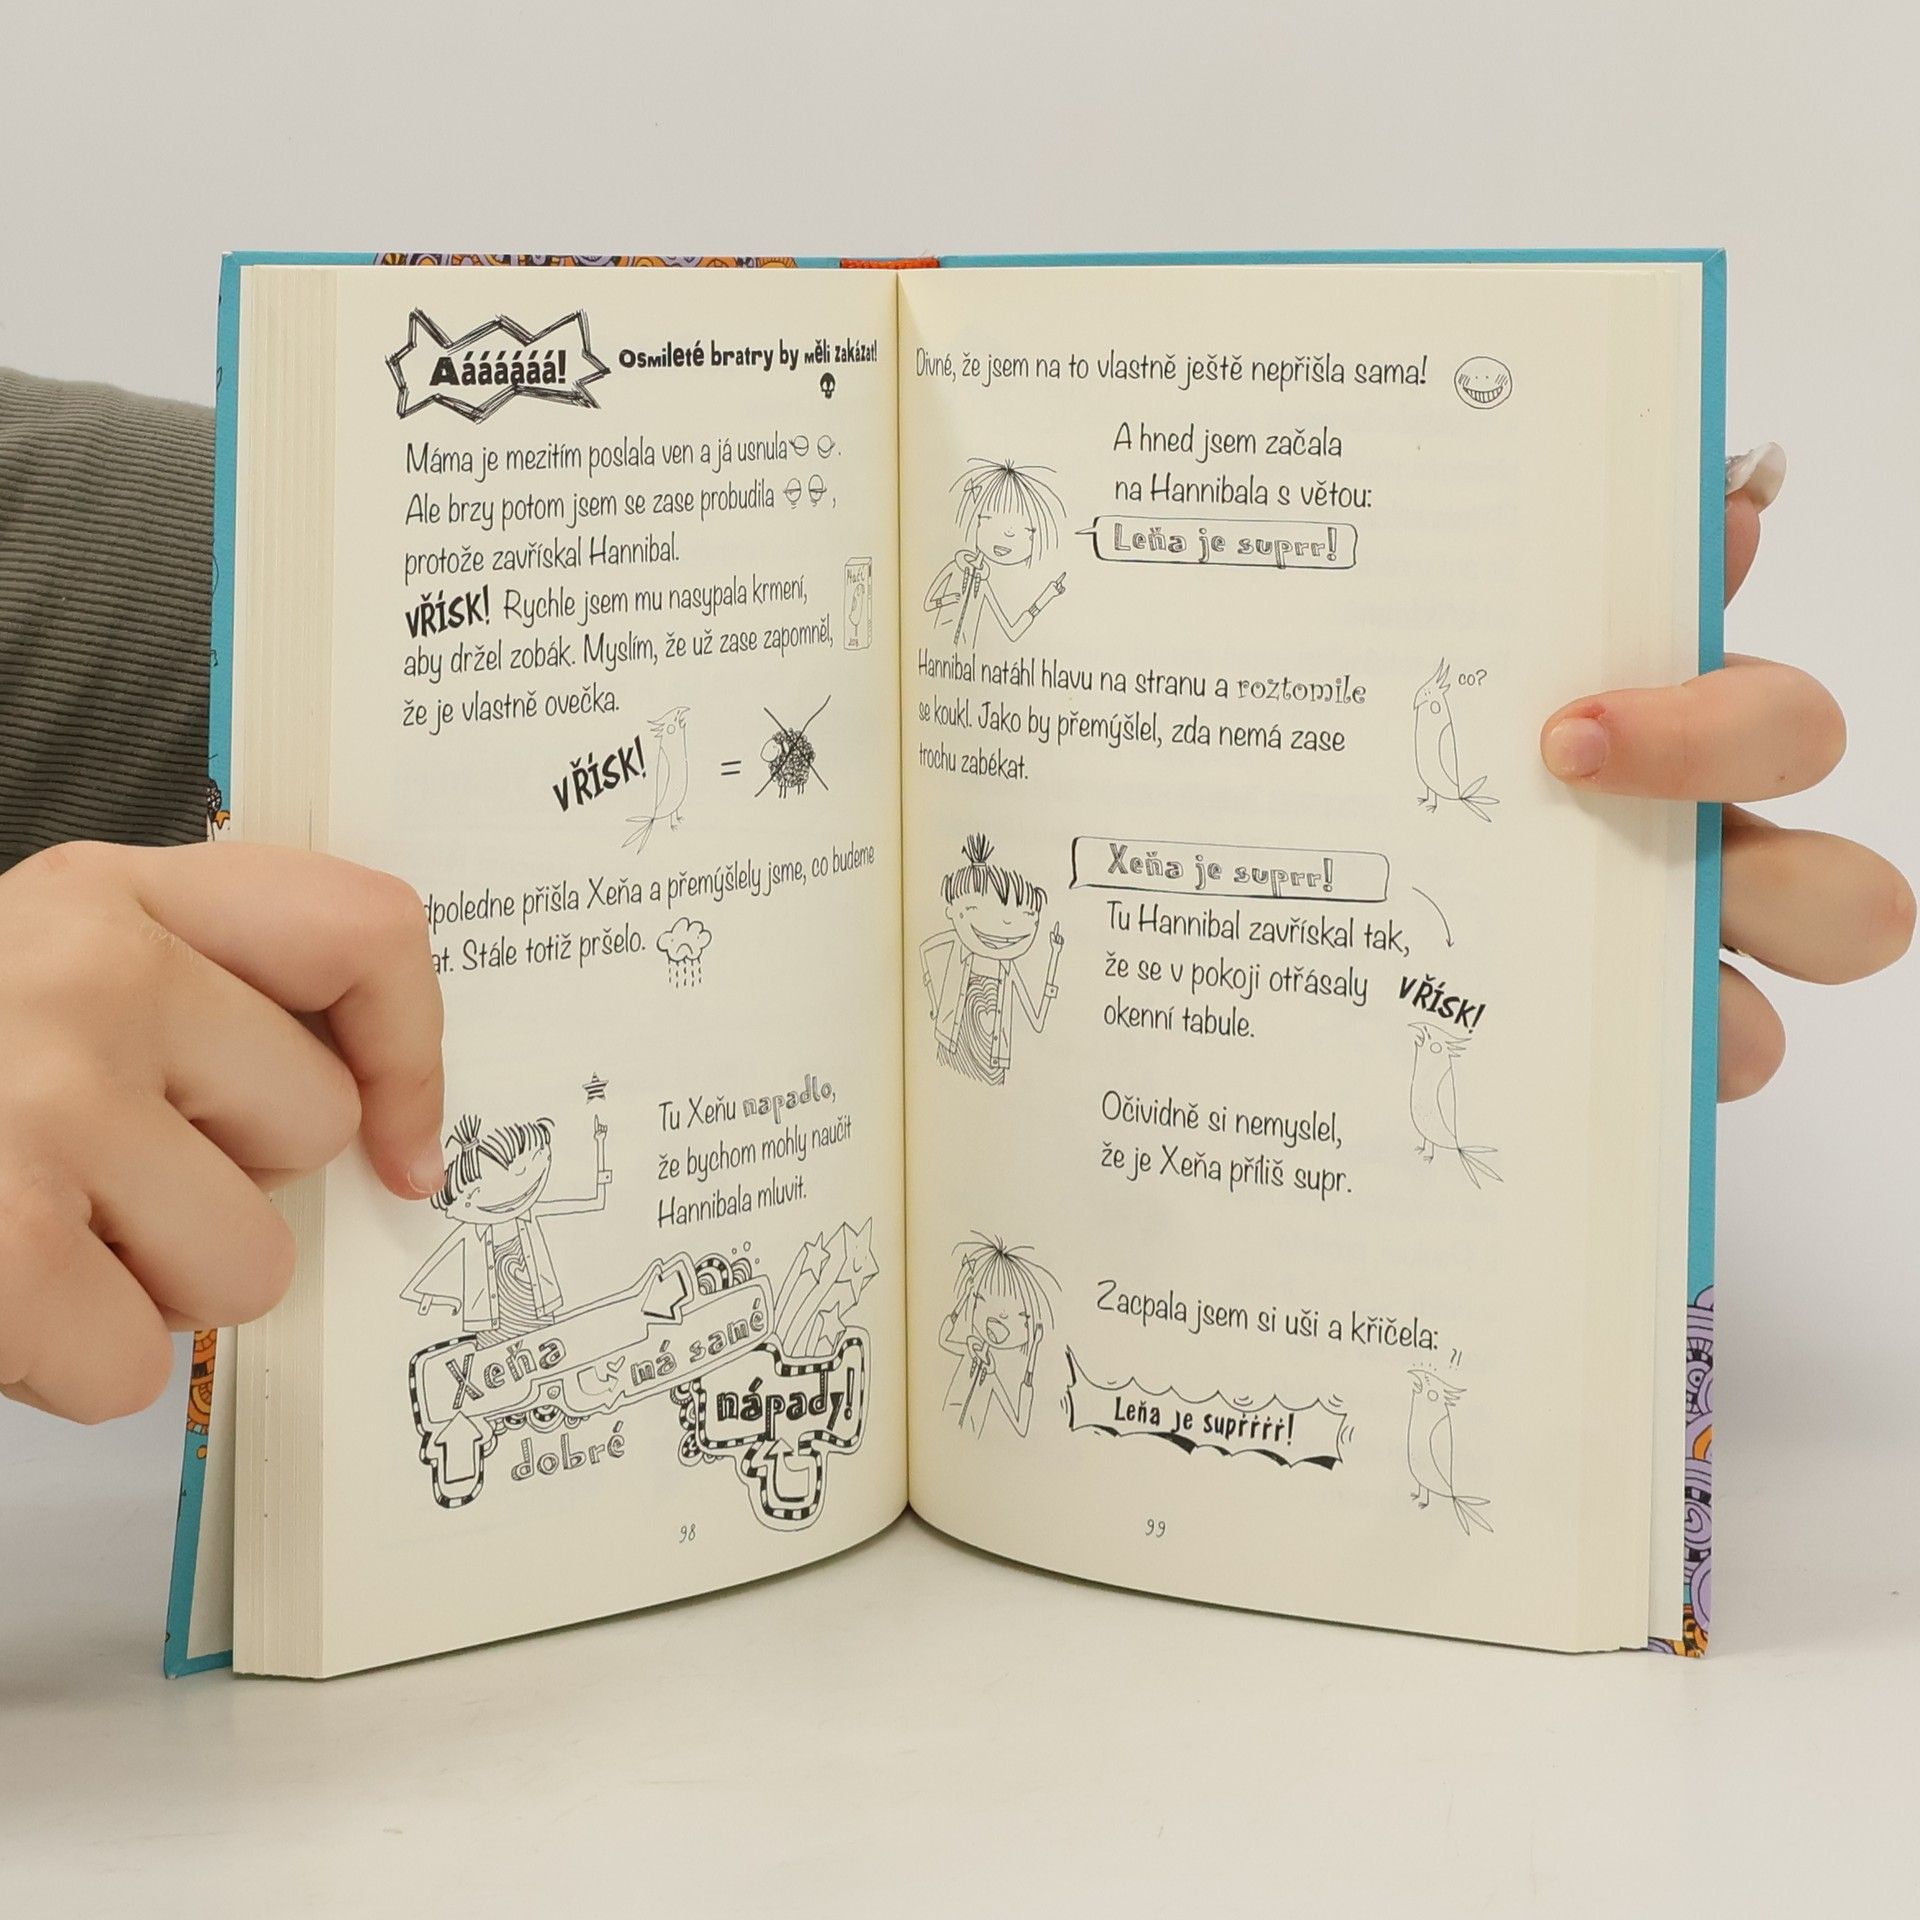 Aáááááá!
Osmileté bratry by měli zakázat!
Máma je mezitím poslala ven a já usnula.
Ale brzy potom jsem se zase probudila,
protože zavřískal Hannibal.
VŘÍSK! Rychle jsem mu nasypala krmení,
aby držel zobák. Myslím, že už zase zapomněl,
že je vlastně ovečka.
VŘÍSK!
=
přišla Xeňa a přemýšlely jsme, co budeme
Stále totiž pršelo.
Tu Xeňu napadlo,
že bychom mohly naučit
Hannibala mluvit.
Xeňa má samé
dobré nápady!
98
Divné, že jsem na to vlastně ještě nepřišla sama!
A hned jsem začala
na Hannibala s větou:
Leňa je suprr!
Hannibal natáhl hlavu na stranu a roztomile
se koukl. Jako by přemýšlel, zda nemá zase
trochu zabékat.
co?
Xeňa je suprr!
Tu Hannibal zavřískal tak,
že se v pokoji otřásaly
okenní tabule.
VŘÍSK!
Očividně si nemyslel,
že je Xeňa příliš supr.
Zacpala jsem si uši a křičela:
?!
Leňa je supřřřř!
99